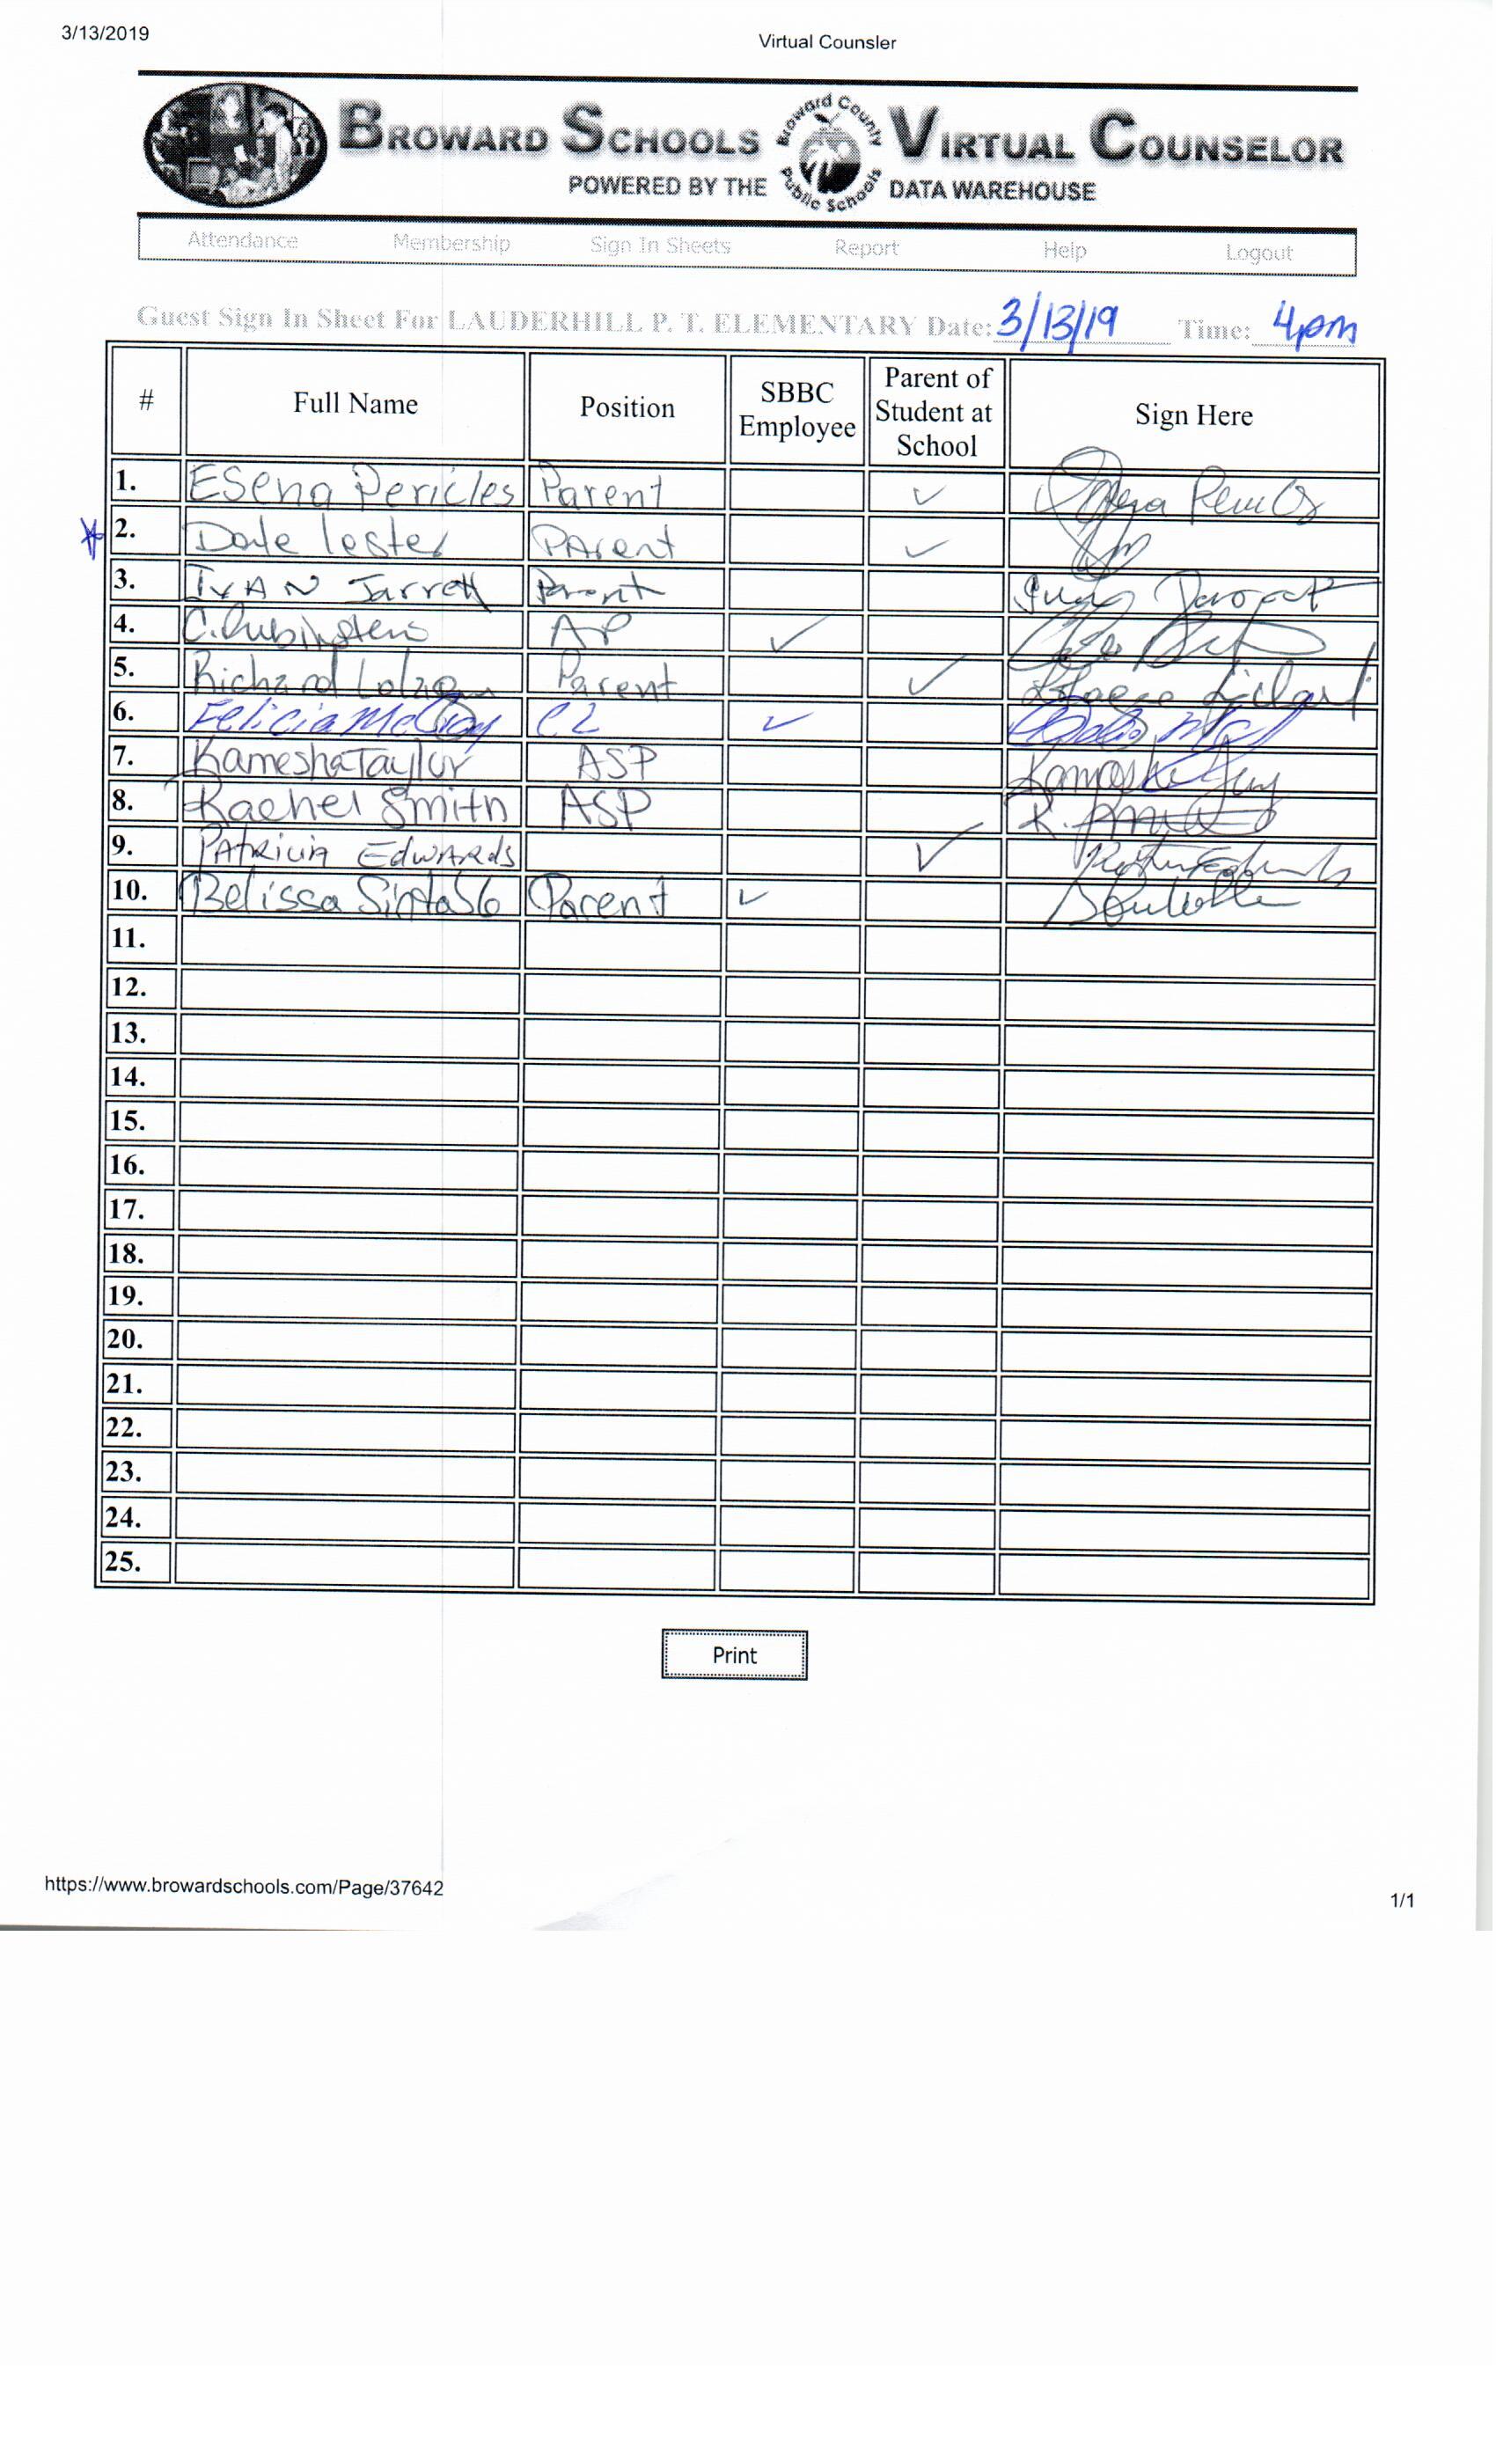 3/13/2019
Virtual Counsler
BROWARD SCHOOLS VIRTUAL COUNSELOR
Broward County Public Schools
POWERED BY THE DATA WAREHOUSE
Attendance Membership Sign In Sheets Report Help Logout
Guest Sign In Sheet For LAUDERHILL P. T. ELEMENTARY Date: 3/13/19 Time: 4pm
# Full Name Position SBBC Employee Parent of Student at School Sign Here
1. ESena Pericles Parent ✓
* 2. Dale lester PArent ✓
3. IVAN Jarrett Parent
4. C. Rubinstein AP ✓
5. Richard Parent ✓
6. Felicia McCray ✓
7. Kamesha Taylor ASP
8. Rachel Smith ASP R. Smith
9. PAtRiciA EdwARds ✓
10. Belissa Parent ✓
11.
12.
13.
14.
15.
16.
17.
18.
19.
20.
21.
22.
23.
24.
25.
Print
https://www.browardschools.com/Page/37642
1/1